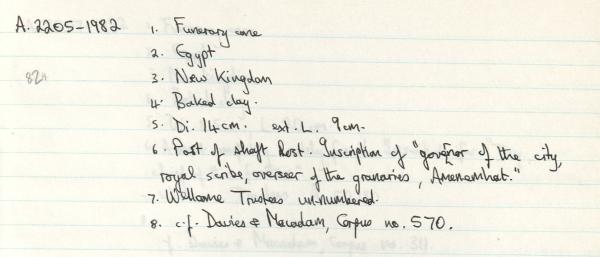 A. 2205-1982 1. Funerary cone
2. Egypt
824 3. New Kingdom
4. Baked clay.
5. Di. 14cm. ext. L. 9cm.
6. Part of shaft lost. Inscription of "governor of the city,
royal scribe, overseer of the granaries, Amenemhat."
7. Wellcome Trustees un-numbered.
8. c.f. Davies & Macadam, Corpus no. 570.
f. Davies & Macadam, Corpus no. 311